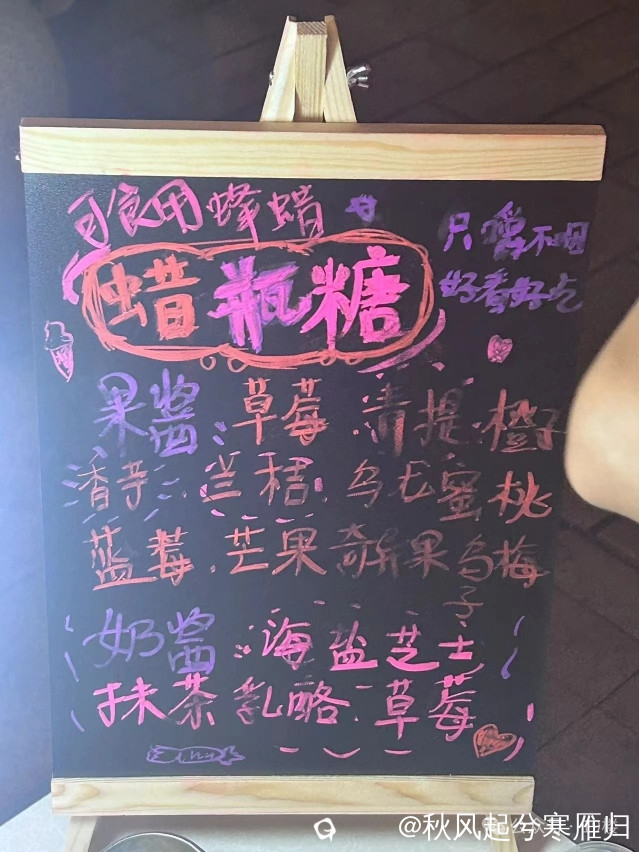 可食用蜂蜡
只嚼不咽
好看好吃
蜡瓶糖
果酱:草莓.青提.橙子
香芋.兰桔.乌龙蜜桃
蓝莓.芒果奇异果乌梅
子
奶酱:海盐芝士
抹茶乳略.草莓
@秋风起兮寒雁归